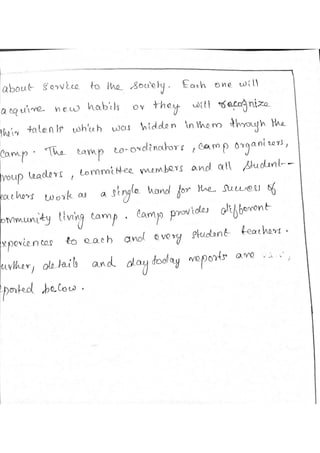 about service to the society. Each one will
acquire new habits or they will recognize
their talents which was hidden in them through the
camp. The camp co-ordinators, camp organisers,
roup leaders, committee members and all student-
eachers work as a single hand for the success of
ommunity living camp. Camp provides different
xperiences to each and every student teachers.
urther, details and day today reports are
ported below.